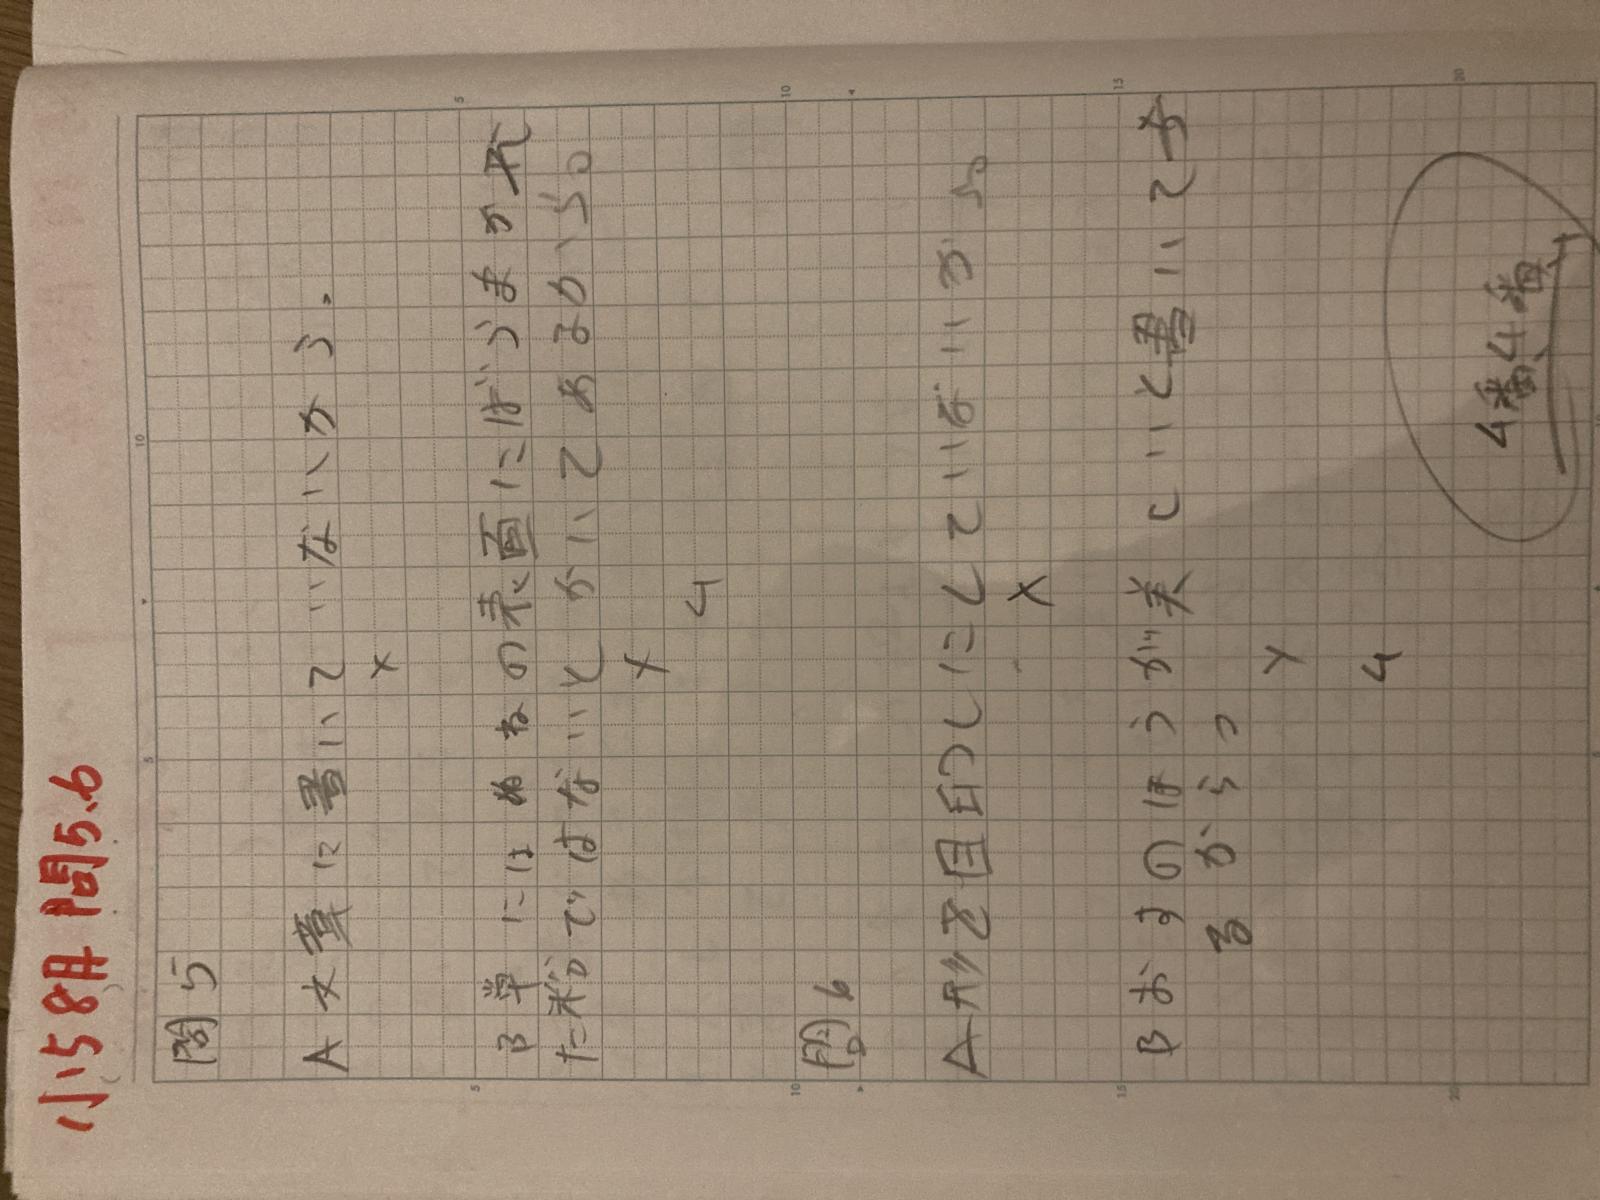 小5 8月 問5、6
問5
A 文章に書いていないから。
×
B 学にはめねの表面にばうまが死
た粉ではないとかいてあるから。
×
4
問6
A 形を目印しにしているから。
×
Bおすのほうが美しいと書いてあ
るから。
×
4
4番、4番